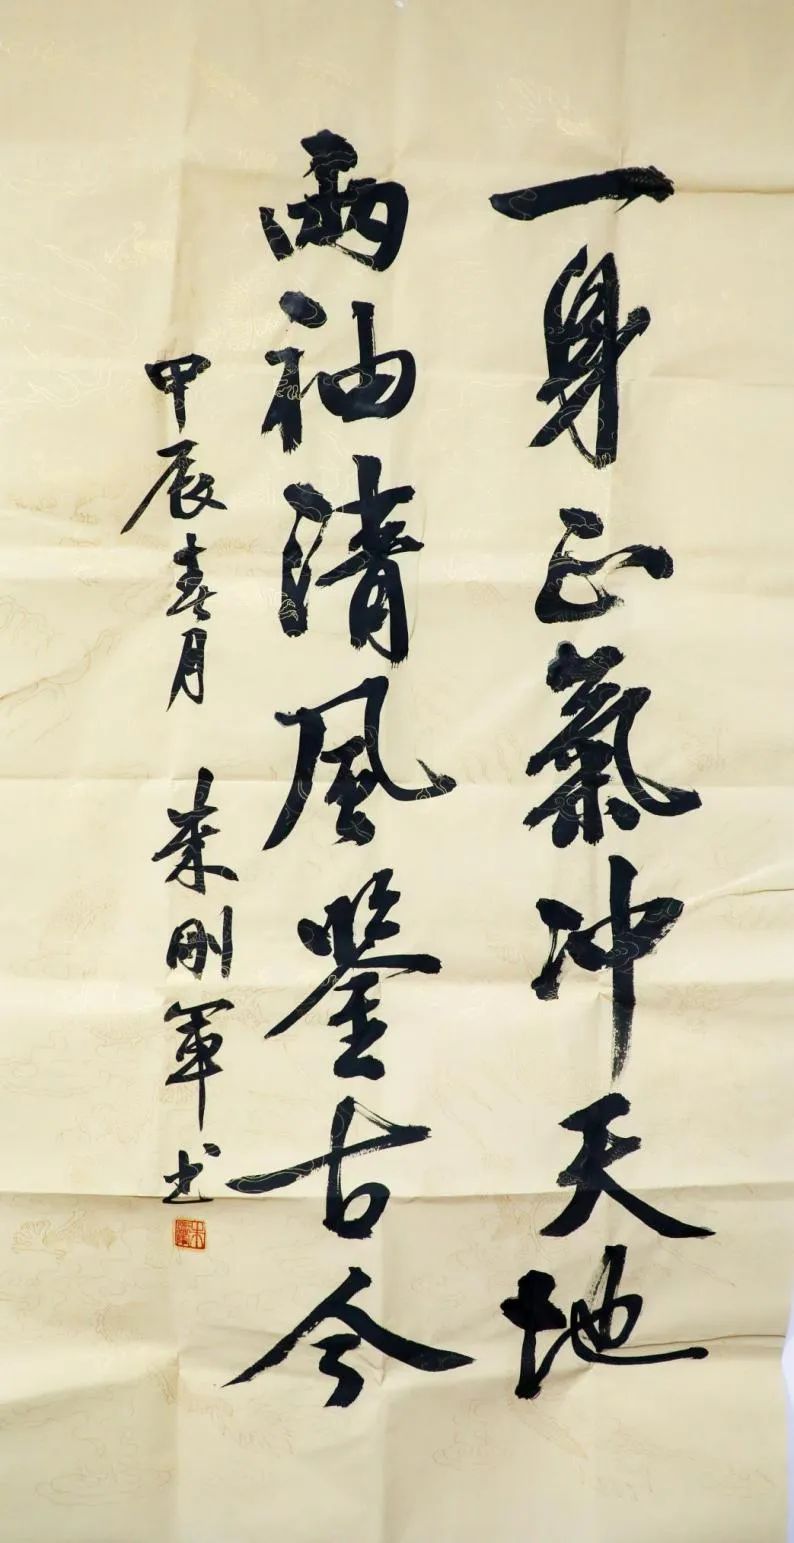 一身正氣冲天地
两袖清風鉴古今
甲辰春月 朱刚軍书